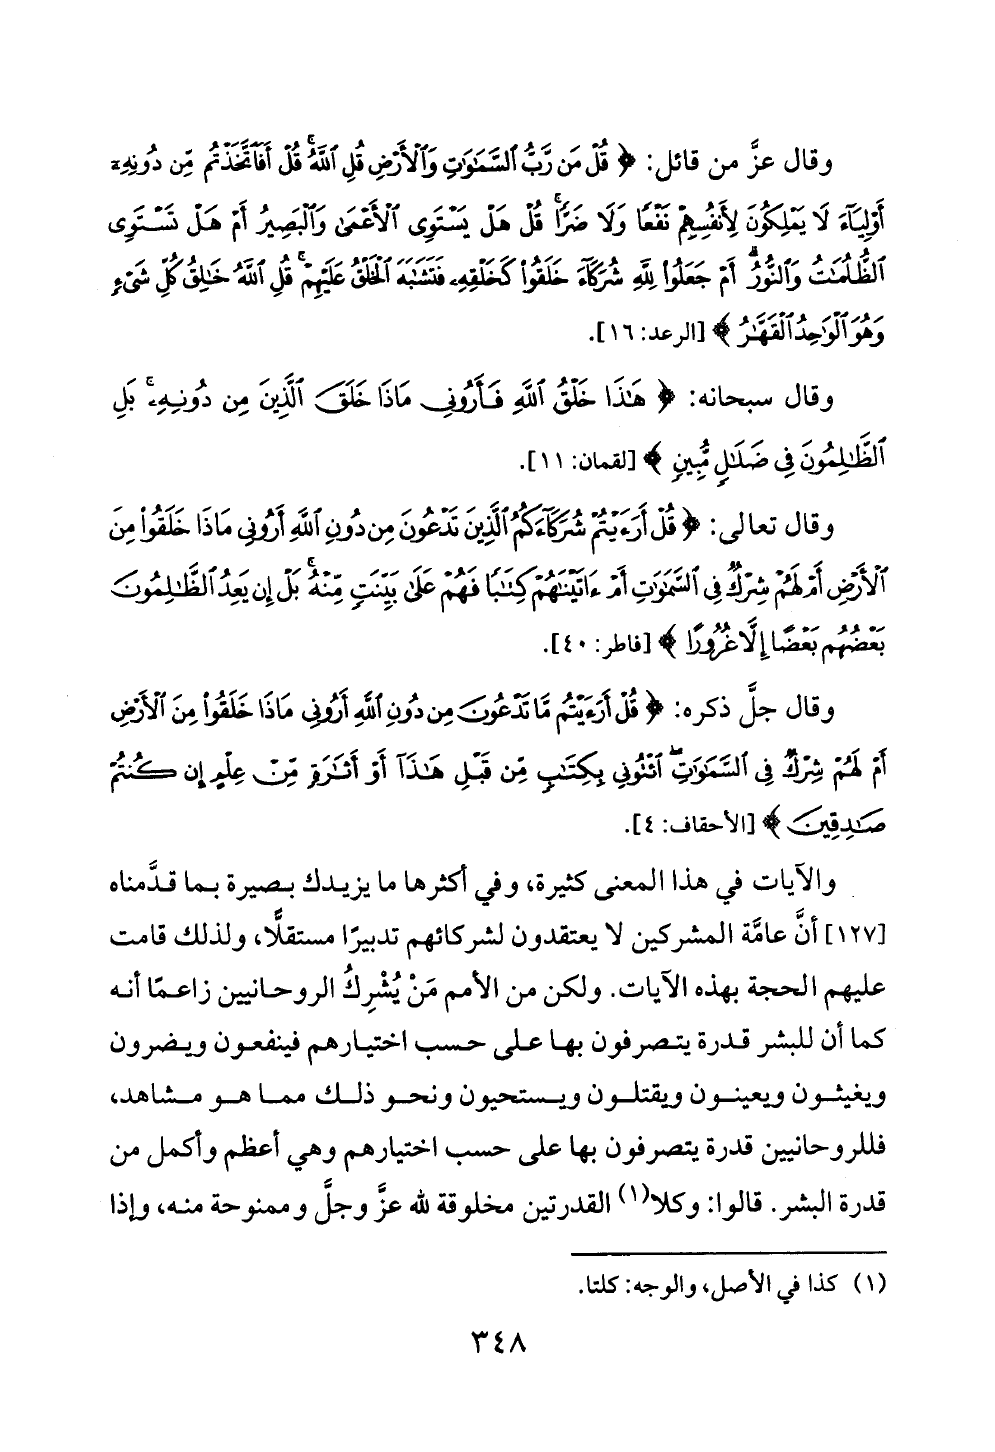 وقال عزَّ من قائل: ﴿ قُلْ مَن رَّبُّ ٱلسَّمَٰوَٰتِ وَٱلْأَرْضِ قُلِ ٱللَّهُ ۚ قُلْ أَفَٱتَّخَذْتُم مِّن دُونِهِۦٓ
أَوْلِيَآءَ لَا يَمْلِكُونَ لِأَنفُسِهِمْ نَفْعًا وَلَا ضَرًّا ۚ قُلْ هَلْ يَسْتَوِى ٱلْأَعْمَىٰ وَٱلْبَصِيرُ أَمْ هَلْ تَسْتَوِى
ٱلظُّلُمَٰتُ وَٱلنُّورُ ۗ أَمْ جَعَلُوا۟ لِلَّهِ شُرَكَآءَ خَلَقُوا۟ كَخَلْقِهِۦ فَتَشَٰبَهَ ٱلْخَلْقُ عَلَيْهِمْ ۚ قُلِ ٱللَّهُ خَٰلِقُ كُلِّ شَىْءٍ
وَهُوَ ٱلْوَٰحِدُ ٱلْقَهَّٰرُ ﴾ [الرعد: ١٦].
وقال سبحانه: ﴿ هَٰذَا خَلْقُ ٱللَّهِ فَأَرُونِى مَاذَا خَلَقَ ٱلَّذِينَ مِن دُونِهِۦ ۚ بَلِ
ٱلظَّٰلِمُونَ فِى ضَلَٰلٍ مُّبِينٍ ﴾ [لقمان: ١١].
وقال تعالى: ﴿ قُلْ أَرَءَيْتُمْ شُرَكَآءَكُمُ ٱلَّذِينَ تَدْعُونَ مِن دُونِ ٱللَّهِ أَرُونِى مَاذَا خَلَقُوا۟ مِنَ
ٱلْأَرْضِ أَمْ لَهُمْ شِرْكٌ فِى ٱلسَّمَٰوَٰتِ أَمْ ءَاتَيْنَٰهُمْ كِتَٰبًا فَهُمْ عَلَىٰ بَيِّنَتٍ مِّنْهُ ۚ بَلْ إِن يَعِدُ ٱلظَّٰلِمُونَ
بَعْضُهُم بَعْضًا إِلَّا غُرُورًا ﴾ [فاطر: ٤٠].
وقال جلَّ ذكره: ﴿ قُلْ أَرَءَيْتُم مَّا تَدْعُونَ مِن دُونِ ٱللَّهِ أَرُونِى مَاذَا خَلَقُوا۟ مِنَ ٱلْأَرْضِ
أَمْ لَهُمْ شِرْكٌ فِى ٱلسَّمَٰوَٰتِ ۖ ٱئْتُونِى بِكِتَٰبٍ مِّن قَبْلِ هَٰذَآ أَوْ أَثَٰرَةٍ مِّنْ عِلْمٍ إِن كُنتُمْ
صَٰدِقِينَ ﴾ [الأحقاف: ٤].
والآيات في هذا المعنى كثيرة، وفي أكثرها ما يزيدك بصيرة بما قدَّمناه
[١٢٧] أنَّ عامَّة المشركين لا يعتقدون لشركائهم تدبيرًا مستقلًّا، ولذلك قامت
عليهم الحجة بهذه الآيات. ولكن من الأمم مَنْ يُشْرِكُ الروحانيين زاعمًا أنه
كما أن للبشر قدرة يتصرفون بها على حسب اختيارهم فينفعون ويضرون
ويغيثون ويعينون ويقتلون ويستحيون ونحو ذلك مما هو مشاهد،
فللروحانيين قدرة يتصرفون بها على حسب اختيارهم وهي أعظم وأكمل من
قدرة البشر. قالوا: وكلا(١) القدرتين مخلوقة لله عزَّ وجلَّ وممنوحة منه، وإذا
(١) كذا في الأصل، والوجه: كلتا.
٣٤٨